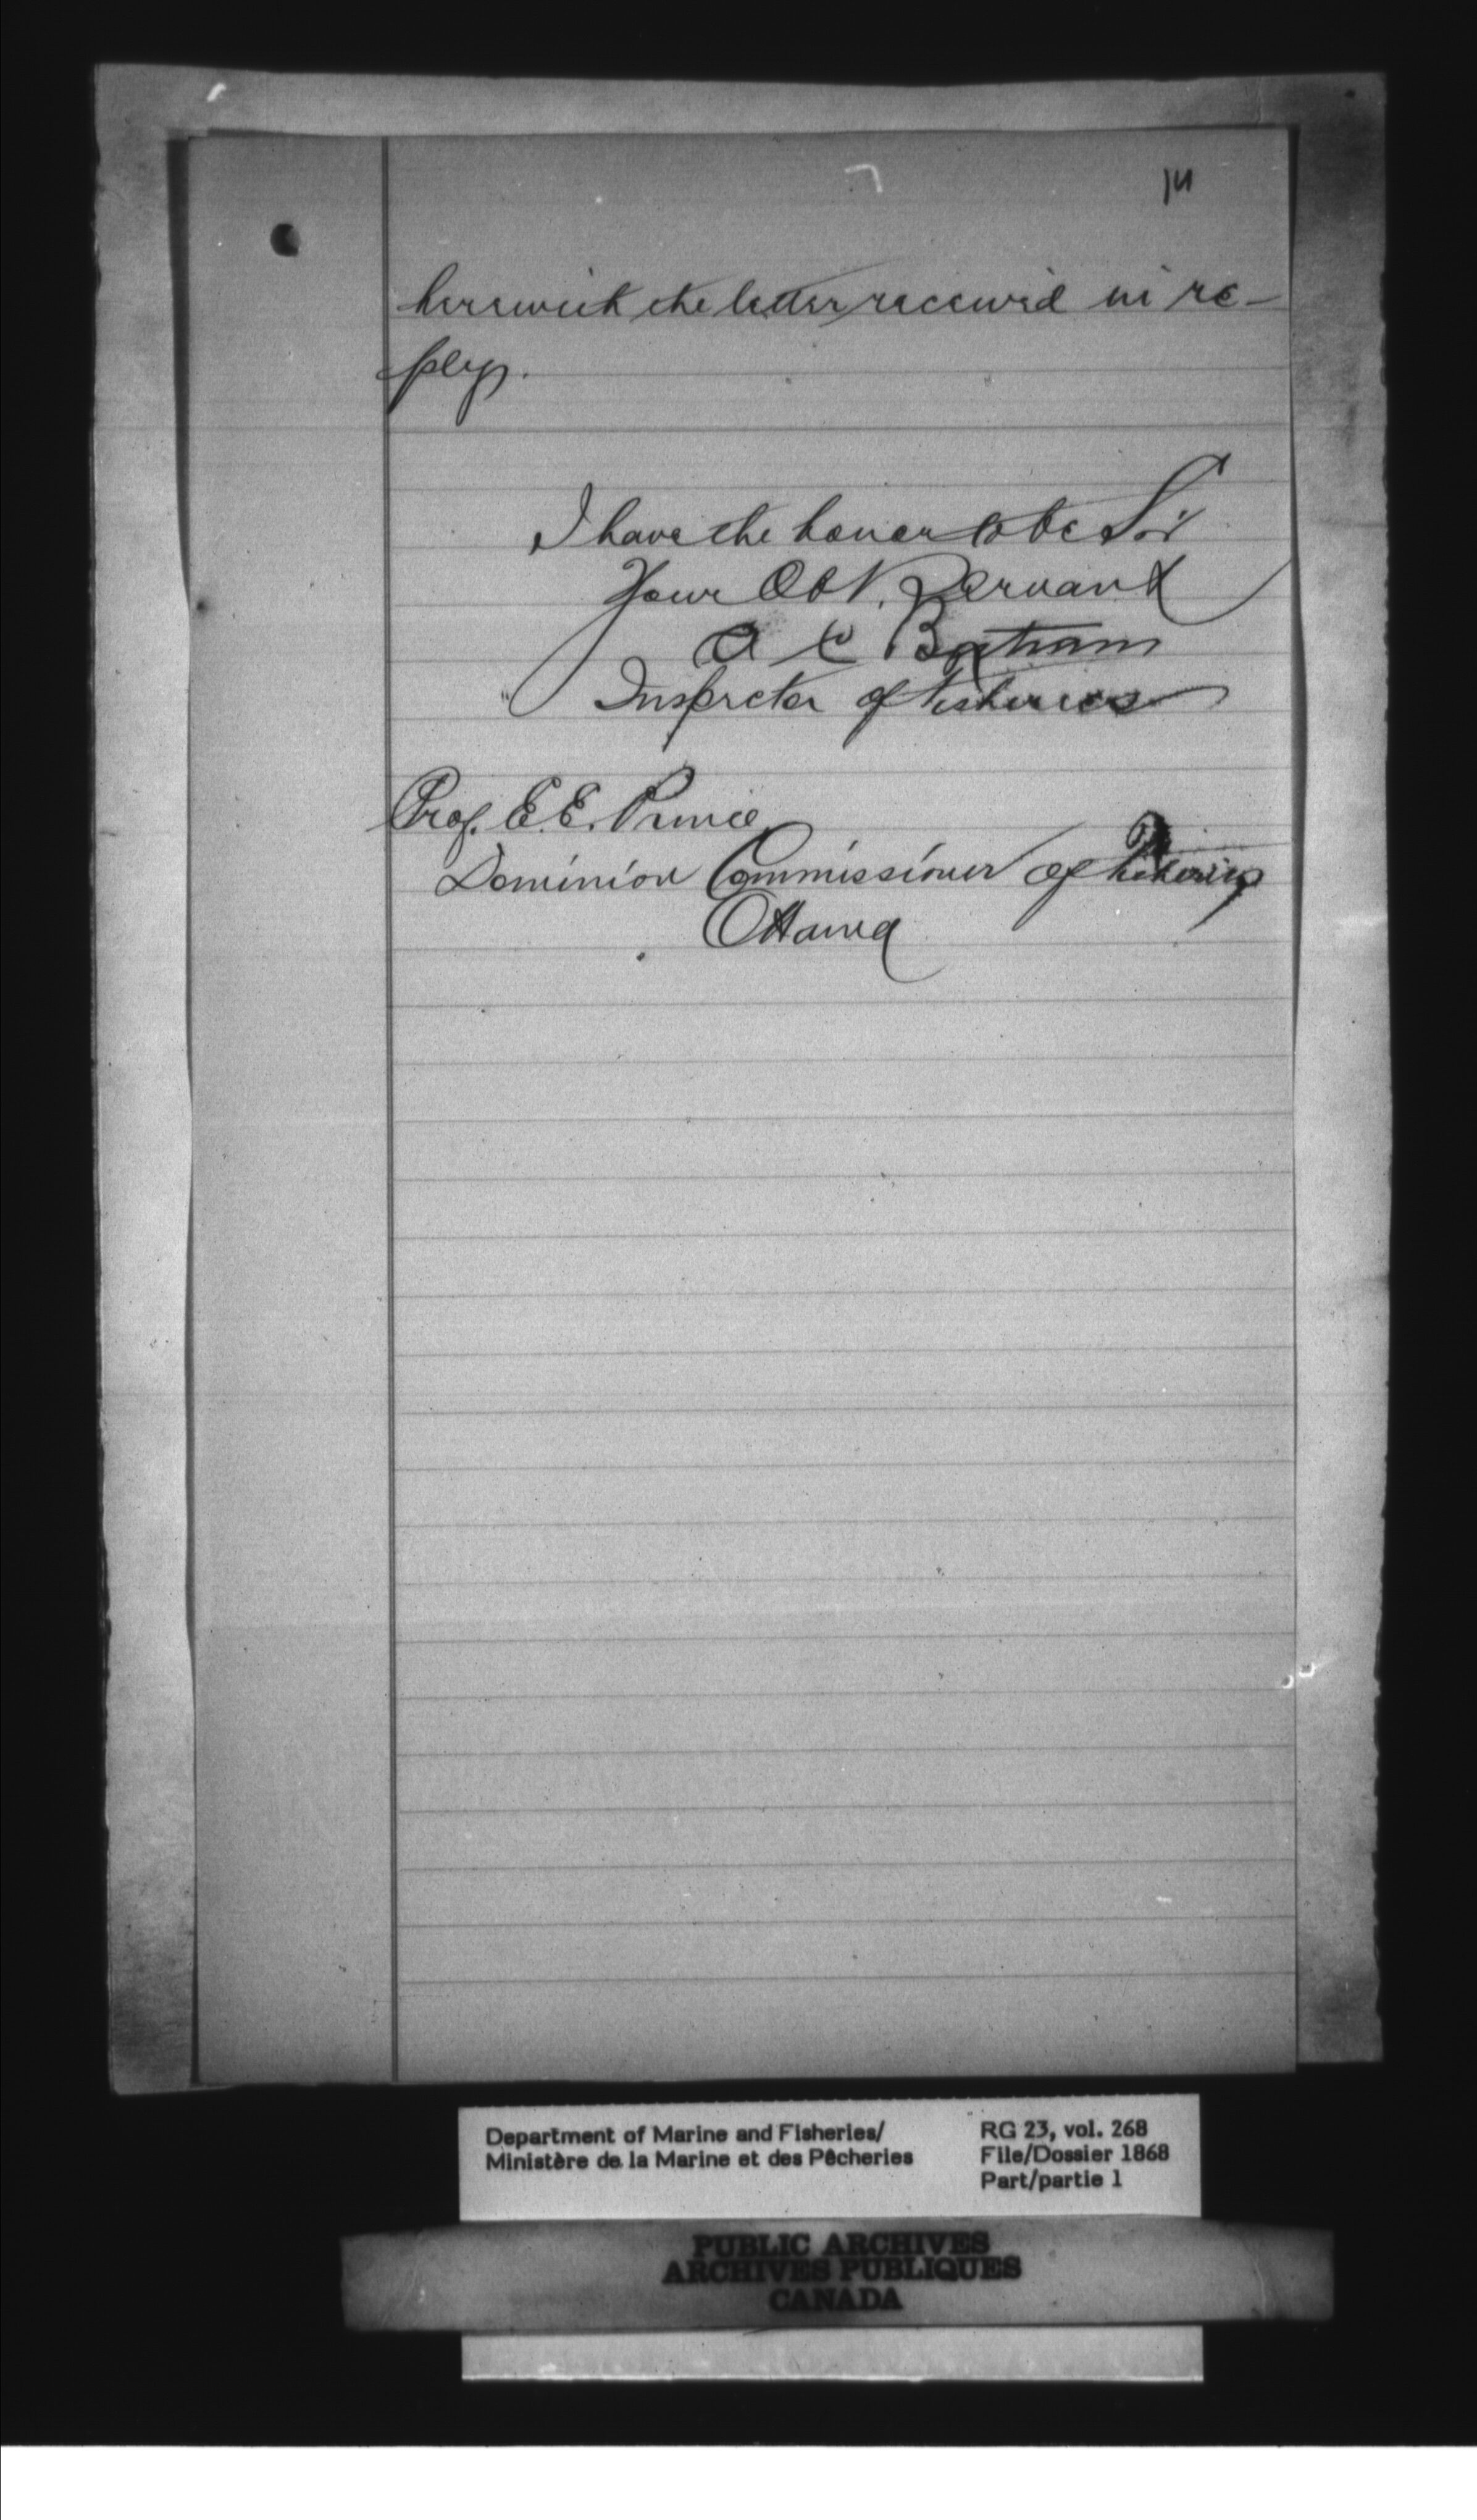 herewith the letter received in re-
ply.
I have the honor to be Sir
Your Obt. Servant
A C Bertram
Inspector of Fisheries
Prof. E. E. Prince
Dominion Commissioner of Fisheries
Ottawa
Department of Marine and Fisheries/
Ministère de la Marine et des Pêcheries
RG 23, vol. 268
File/Dossier 1868
Part/partie 1
PUBLIC ARCHIVES
ARCHIVES PUBLIQUES
CANADA